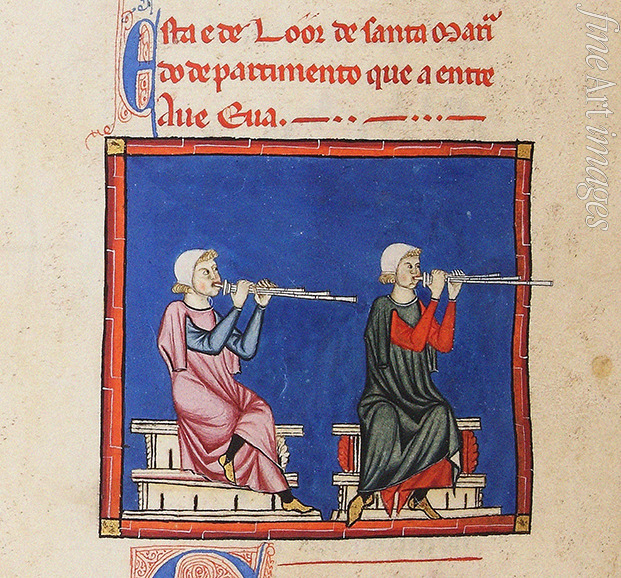 Esta e de Loor de santa Mari
do departimento que a entre
Aue Eua.
fine Art images